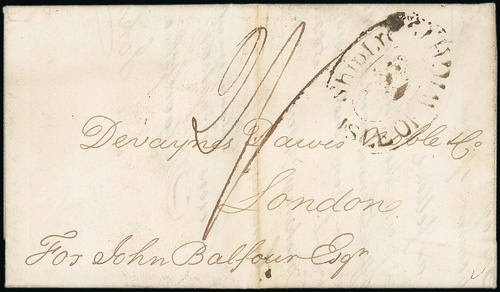 2/
Ship Lr
Devaynes Dawes Noble & Co
London
For John Balfour Esqr